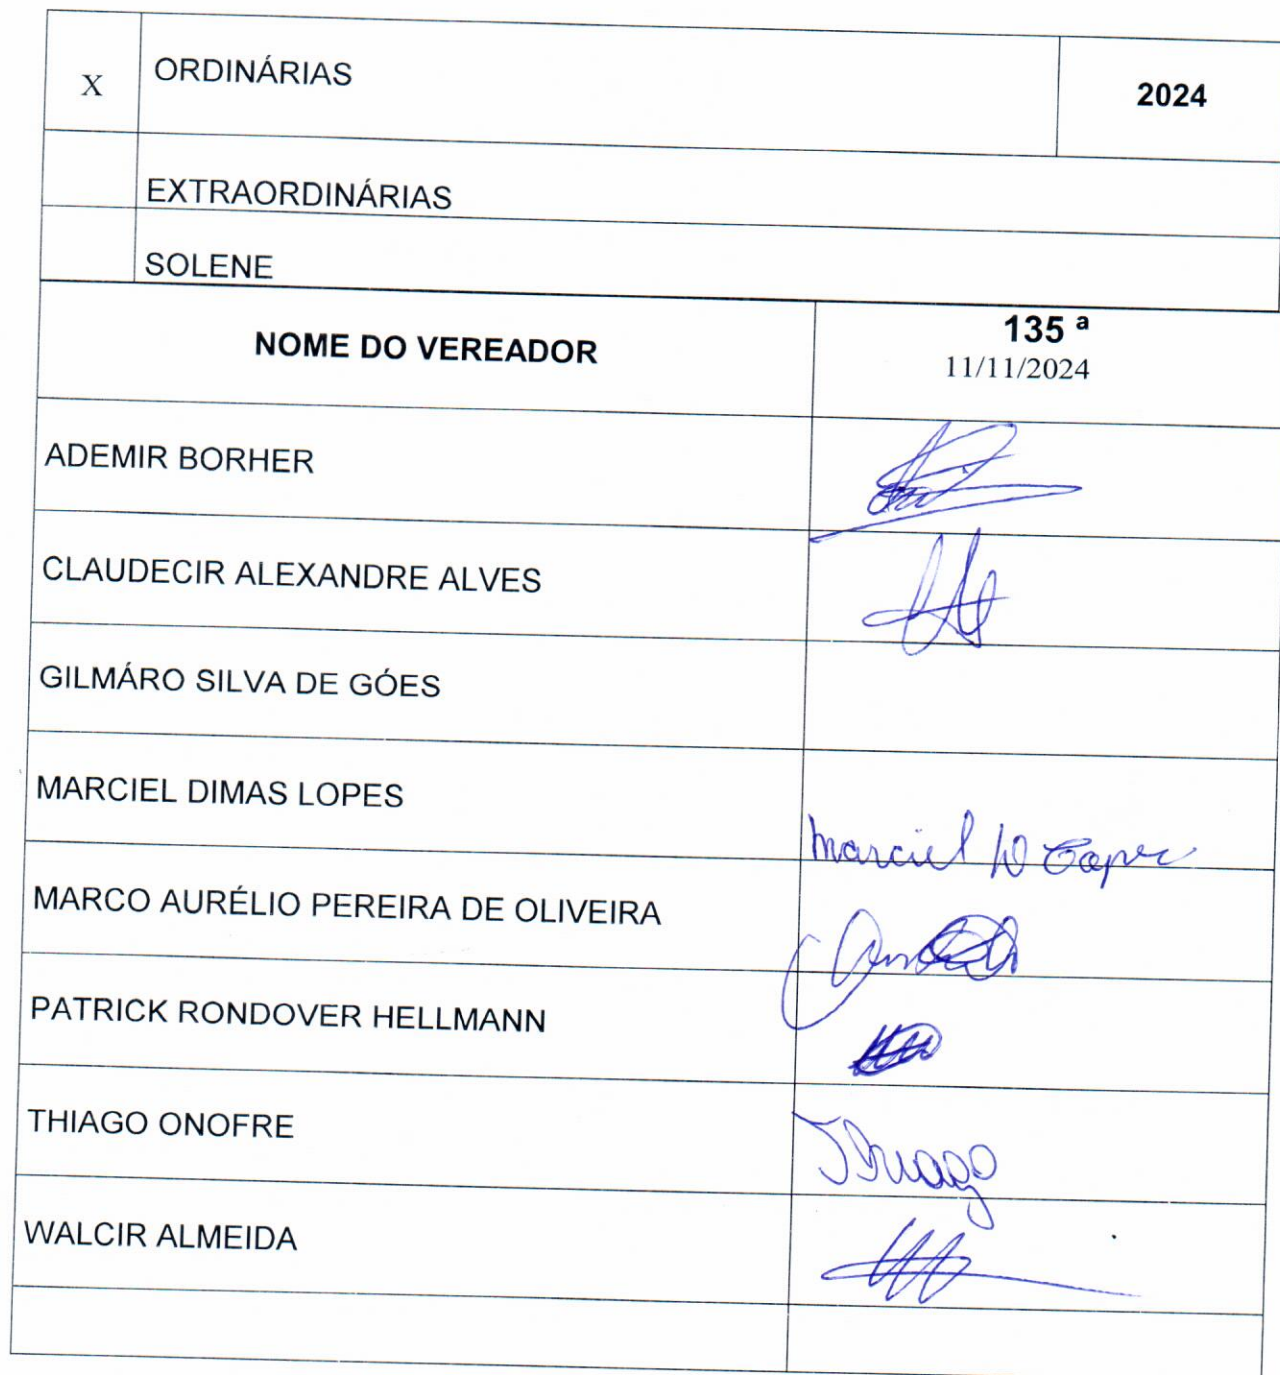 X ORDINÁRIAS 2024
EXTRAORDINÁRIAS
SOLENE
NOME DO VEREADOR 135 ª
11/11/2024
ADEMIR BORHER
CLAUDECIR ALEXANDRE ALVES
GILMÁRO SILVA DE GÓES
MARCIEL DIMAS LOPES
Marciel D Lopes
MARCO AURÉLIO PEREIRA DE OLIVEIRA
PATRICK RONDOVER HELLMANN
THIAGO ONOFRE
Thiago
WALCIR ALMEIDA